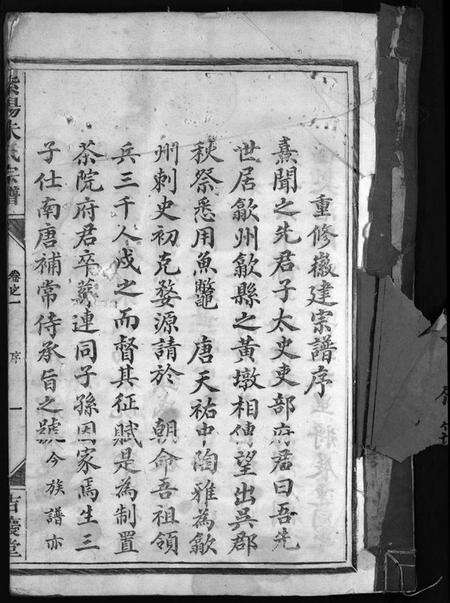 重修徽建宗譜序
熹聞之先君子太史吏部府君曰吾先
世居歙州歙縣之黃墩相傳望出吳郡
秋祭悉用魚鼈 唐天祐中陶雅為歙
州刺史初克婺源請於 朝命吾祖領
兵三千人戍之而督其征賦是為制置
茶院府君卒葬連同子孫因家焉生三
子仕南唐補常侍承旨之號今族譜亦
紫陽朱氏宗譜
卷之一
序
一